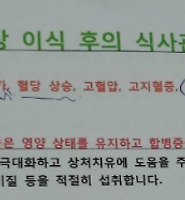 이식 후의 식사
혈당 상승, 고혈압, 고지혈증,
은 영양 상태를 유지하고 합병증
극대화하고 상처치유에 도움을 주
질 등을 적절히 섭취합니다.